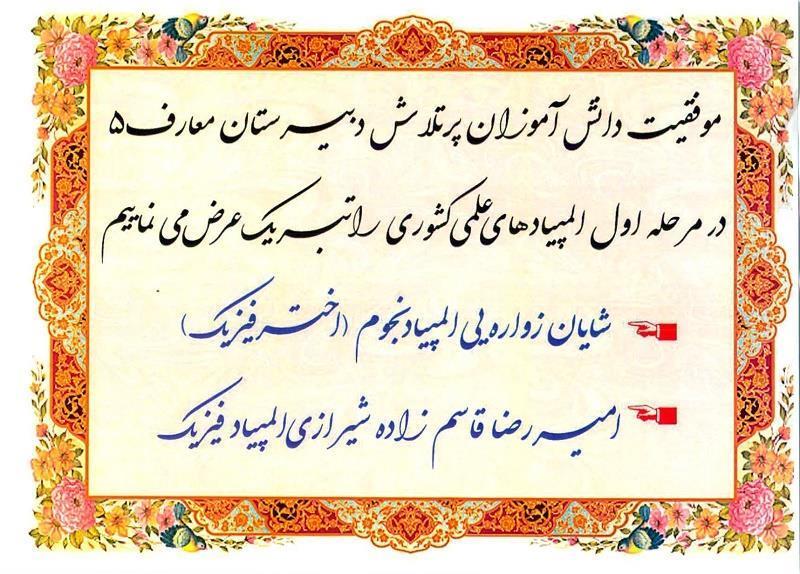 موفقیت دانش آموزان پرتلاش دبیرستان معارف ۵
در مرحله اول المپیادهای علمی کشوری را تبریک عرض می نماییم
شایان زواره یی المپیاد نجوم (اختر فیزیک)
امیررضا قاسم زاده شیرازی المپیاد فیزیک